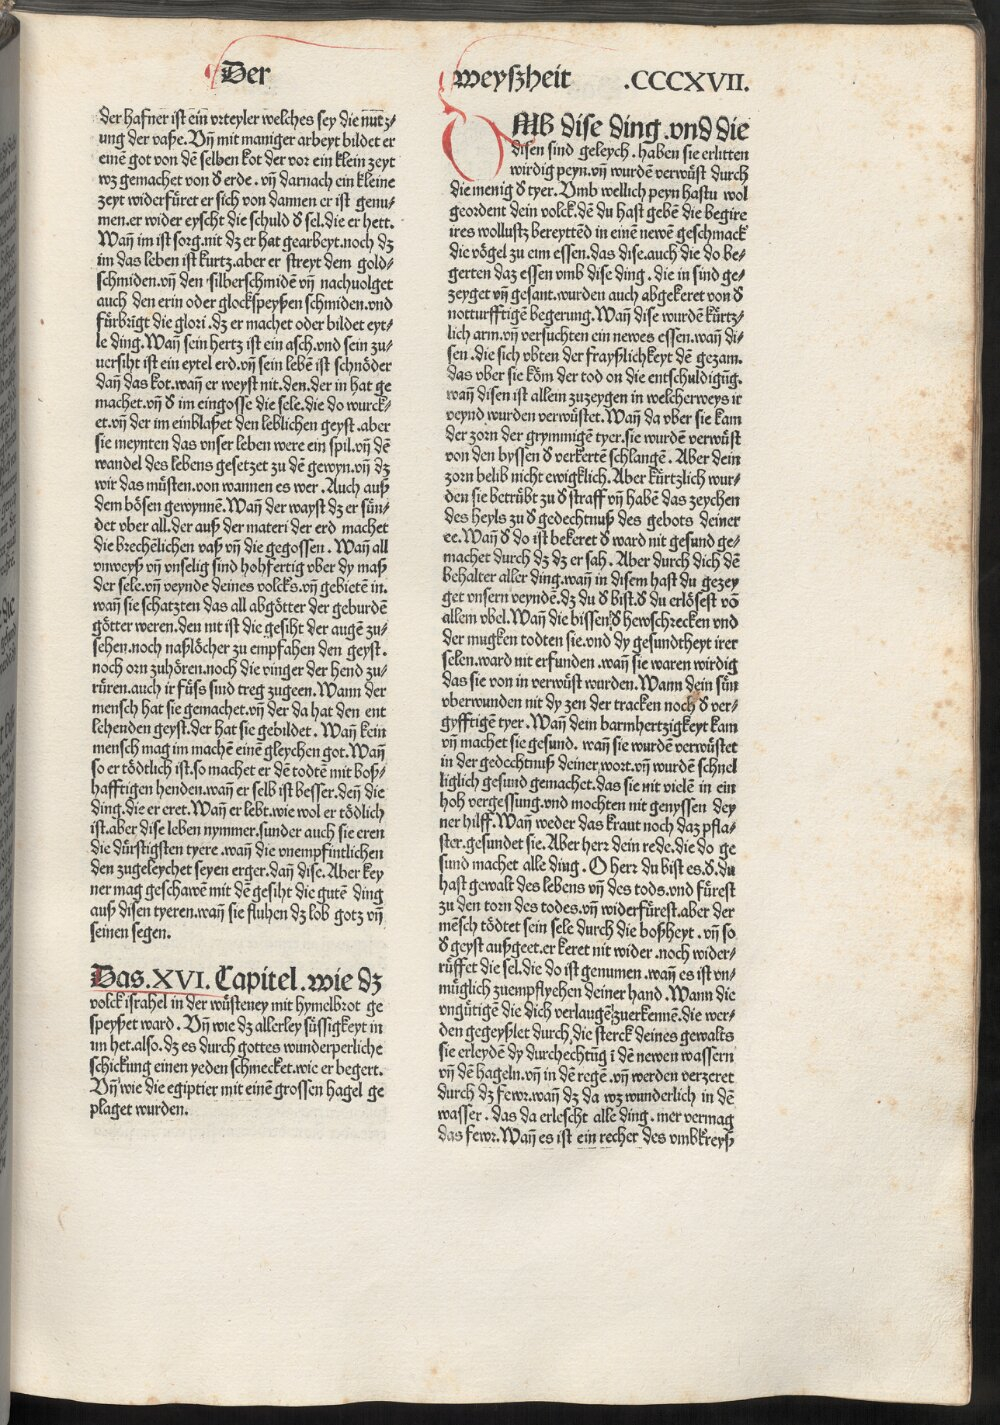 Der weyßheit .CCCXVII.
der hafner ist ein vrteyler welches sey die nutz⸗
ung der vaße. Vn̄ mit maniger arbeyt bildet er
einē got von dē selben kot der vor ein klein zeyt
wz gemachet von ð erde. vn̄ darnach ein kleine
zeyt widerfüret er sich von dannen er ist genu⸗
men. er wider eyscht die schuld ð sel. die er hett.
Wan̄ im ist sorg. nit dz er hat gearbeyt. noch dz
im das leben ist kurtz. aber er streyt dem gold⸗
schmiden. vn̄ den silberschmidē vn̄ nachuolget
auch den erin oder glockspeyßen schmiden. vnd
fürbrīgt die glori. dz er machet oder bildet eyt⸗
le ding. Wan̄ sein hertz ist ein asch. vnd sein zu⸗
uersiht ist ein eytel erd. vn̄ sein lebē ist schnöder
dan̄ das kot. wan̄ er weyst nit. den. der in hat ge
machet. vn̄ ð im eingosse die sele. die do wurck⸗
et. vn̄ der im einblaßet den leblichen geyst. aber
sie meynten das vnser leben were ein spil. vn̄ dē
wandel des lebens gesetzet zu dē gewyn. vn̄ dz
wir das müsten. von wannen es wer. Auch auß
dem bösen gewynnē. Wan̄ der wayst dz er sün⸗
det vber all. der auß der materi der erd machet
die brechēlichen vaß vn̄ die gegossen. Wan̄ all
vnweyß vn̄ vnselig sind hohfertig vber dy maß
der sele. vn̄ veynde deines volcks. vn̄ gebietē in.
wan̄ sie schatzten das all abgötter der geburdē
götter weren. den nit ist die gesiht der augē zu⸗
sehen. noch naßlöcher zu empfahen den geyst.
noch orn zuhören. noch die vinger der hend zu⸗
rüren. auch ir füss sind treg zugeen. Wann der
mensch hat sie gemachet. vn̄ der da hat den ent
lehenden geyst. der hat sie gebildet. Wan̄ kein
mensch mag im machē einē gleychen got. Wan̄
so er tödtlich ist. so machet er dē todtē mit boß⸗
hafftigen henden. wan̄ er selb ist besser. den̄ die
ding. die er eret. Wan̄ er lebt. wie wol er tödlich
ist. aber dise leben nymmer. sunder auch sie eren
die dürstigsten tyere. wan̄ die vnempfintlichen
den zugeleychet seyen erger. dan̄ dise. Aber key
ner mag geschawē mit dē gesiht die gutē ding
auß disen tyeren. wan̄ sie fluhen dz lob gotz vn̄
seinen segen.
Das. XVI. Capitel. wie dz
volck israhel in der wüsteney mit hymelbrot ge
speyßet ward. Vn̄ wie dz allerley süssigkeyt in
im het. also. dz es durch gottes wunderperliche
schickung einen yeden schmecket. wie er begert.
Vn̄ wie die egiptier mit einē grossen hagel ge
plaget wurden.
VMb dise ding. vnd die
disen sind geleych. haben sie erlitten
wirdig peyn. vn̄ wurdē verwüst durch
die menig ð tyer. Vmb wellich peyn hastu wol
geordent dein volck. dē du hast gebē die begire
ires wollustz bereyttēd in einē newē geschmack
die vögel zu eim essen. das dise. auch die do be⸗
gerten daz essen vmb dise ding. die in sind ge⸗
zeyget vn̄ gesant. wurden auch abgekeret von ð
notturfftigen begerung. Wan̄ dise wurdē kürtz⸗
lich arm. vn̄ versuchten ein newes essen. wan̄ di⸗
sen. die sich vbten der frayßlichkeyt dē gezam.
das vber sie köm der tod on die entschuldigūg.
wan̄ disen ist allein zuzeygen in welcherweys ir
veynd wurden verwüstet. Wan̄ da vber sie kam
der zorn der grymmigē tyer. sie wurdē verwüst
von den byssen ð verkertē schlangē. Aber dein
zorn belib nicht ewigklich. Aber kürtzlich wur⸗
den sie betrübt zu ð straff vn̄ habē das zeychen
des heyls zu ð gedechtnuß des gebots deiner
ee. Wan̄ ð do ist bekeret ð ward nit gesund ge⸗
machet durch dz dz er sah. Aber durch dich dē
behalter aller ding. wan̄ in disem hast du gezey
get vnsern veyndē. dz du ð bist. ð du erlösest vō
allem vbel. Wan̄ die bissen ð hewschrecken vnd
der mugken todten sie. vnd dy gesundtheyt irer
selen. ward nit erfunden. wan̄ sie waren wirdig
das sie von in verwüst wurden. Wann dein sün
vberwunden nit dy zen der tracken noch ð ver⸗
gyfftigē tyer. Wan̄ dein barmhertzigkeyt kam
vn̄ machet sie gesund. wan̄ sie wurdē verwüstet
in der gedechtnuß deiner wort. vn̄ wurdē schnel
liglich gesund gemachet. das sie nit vielē in ein
hoh vergessung. vnd mochten nit genyssen dey
ner hilff. Wan̄ weder das kraut noch daz pfla⸗
ster. gesundet sie. Aber herr dein rede. die do ge
sund machet alle ding. O herr du bist es. ð. du
hast gewalt des lebens vn̄ des tods. vnd fürest
zu den torn des todes. vn̄ widerfürest. aber der
mēsch tödtet sein sele durch die boßheyt. vn̄ so
ð geyst außgeet. er keret nit wider. noch wider⸗
rüffet die sel. die do ist genumen. wan̄ es ist vn⸗
müglich zuempflyehen deiner hand. Wann die
vngütigē die dich verlaugē zuerkennē. die wer⸗
den gegeyßlet durch die sterck deines gewalts
sie erleydē dy durchechtūg ī dē newen wassern
vn̄ dē hageln. vn̄ in dē regē. vn̄ werden verzeret
durch dz fewr. wan̄ dz da wz wunderlich in dē
wasser. das da erlescht alle ding. mer vermag
das fewr. Wan̄ es ist ein recher des vmbkreyß